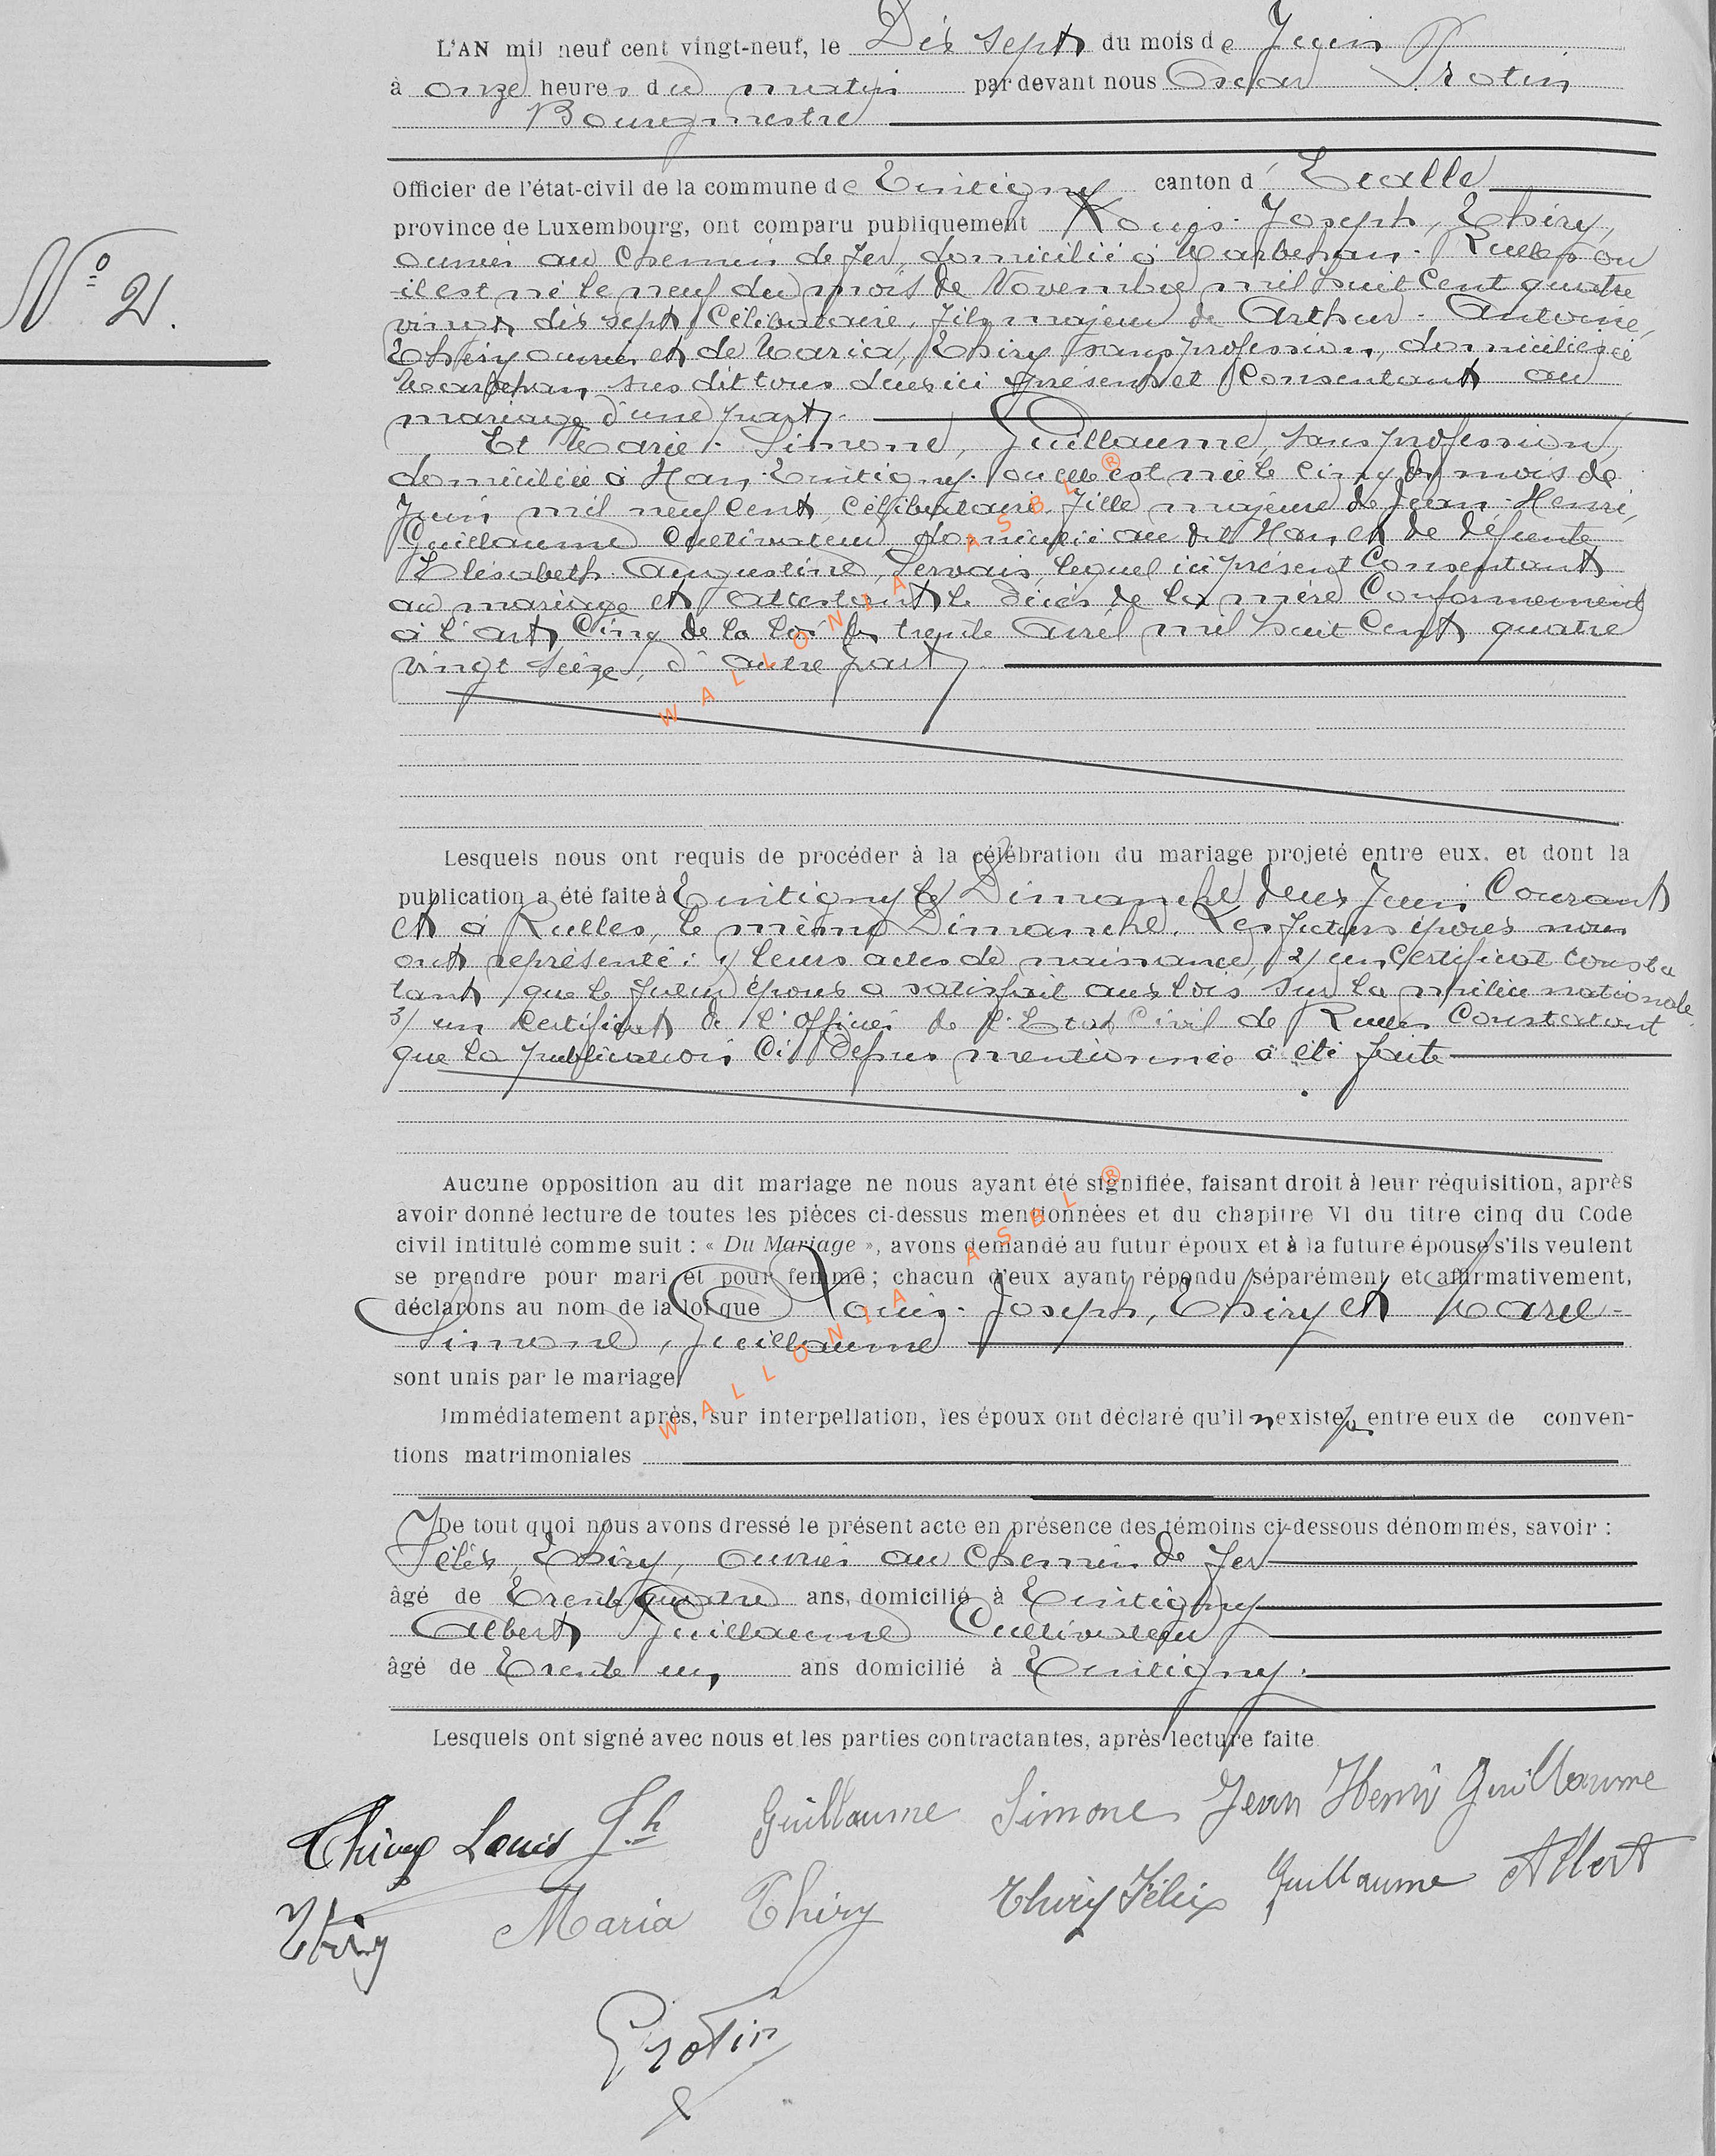 L'AN mil neuf cent vingt-neuf, le Dix sept du mois de Juin
à onze heures du matin par devant nous Oscar Protin
Bourgmestre
Officier de l'état-civil de la commune de Tintigny canton d' Etalle
province de Luxembourg, ont comparu publiquement Louis-Joseph, Thiry,
N° 2.
ouvrier au Chemin de fer, domicilié à Marbehan-Rulles où
il est né le neuf du mois de Novembre mil huit cent quatre
vingt dix sept, Célibataire, fils majeur de Arthur-Antoine,
Thiry ouvrier et de Maria, Thiry sans profession, domiciliés à
Marbehan sus dit tous deux ici présents et Consentant au
mariage d'une part.
Et Marie-Simone, Guillaume, sans profession,
domiciliée à Han-Tintigny où elle est née le cinq du mois de
Juin mil neuf cent, célibataire, fille majeure de Jean-Henri,
Guillaume Cultivateur domicilié au dit Han et de défunte
Elisabeth Augustine, Servais, lequel ici présent Consentant
au mariage et attestant le décès de la mère Conformément
à l'art, Cinq de la loi du trente avril mil huit Cent quatre
vingt seize, d'autre part,
Lesquels nous ont requis de procéder à la célébration du mariage projeté entre eux, et dont la
publication a été faite à Tintigny le Dimanche, deux Juin Courant
et à Rulles, le même Dimanche. Les futurs époux nous
ont représenté: 1/ leurs actes de naissance, 2/ un Certificat consta
tant que le futur époux a satisfait aux lois sur la milice nationale
3/ un certificat de l'officier de l'Etat Civil de Rulles Constatant
que la publication Ci dessus mentionnée a été faite
Aucune opposition au dit mariage ne nous ayant été signifiée, faisant droit à leur réquisition, après
avoir donné lecture de toutes les pièces ci-dessus mentionnées et du chapitre VI du titre cinq du Code
civil intitulé comme suit : « Du Mariage », avons demandé au futur époux et à la future épouse s'ils veulent
se prendre pour mari et pour femme; chacun d'eux ayant répondu séparément et affirmativement,
déclarons au nom de la loi que Louis-Joseph, Thiry et Marie-
Simone, Guillaume
sont unis par le mariage
Immédiatement après, sur interpellation, les époux ont déclaré qu'il n'existe pas entre eux de conven-
tions matrimoniales
De tout quoi nous avons dressé le présent acte en présence des témoins ci-dessous dénommés, savoir :
Félix, Thiry, ouvrier au chemin de fer
âgé de Trente quatre ans, domicilié à Tintigny
Albert Guillaume Cultivateur
âgé de Trente un, ans domicilié à Tintigny.
Lesquels ont signé avec nous et les parties contractantes, après lecture faite
Thiry Louis Jh Guillaume Simone Jean Henri Guillaume
Thiry Maria Thiry Thiry Félix Guillaume Albert
Protin
WALLONIA ASBL®
WALLONIA ASBL®